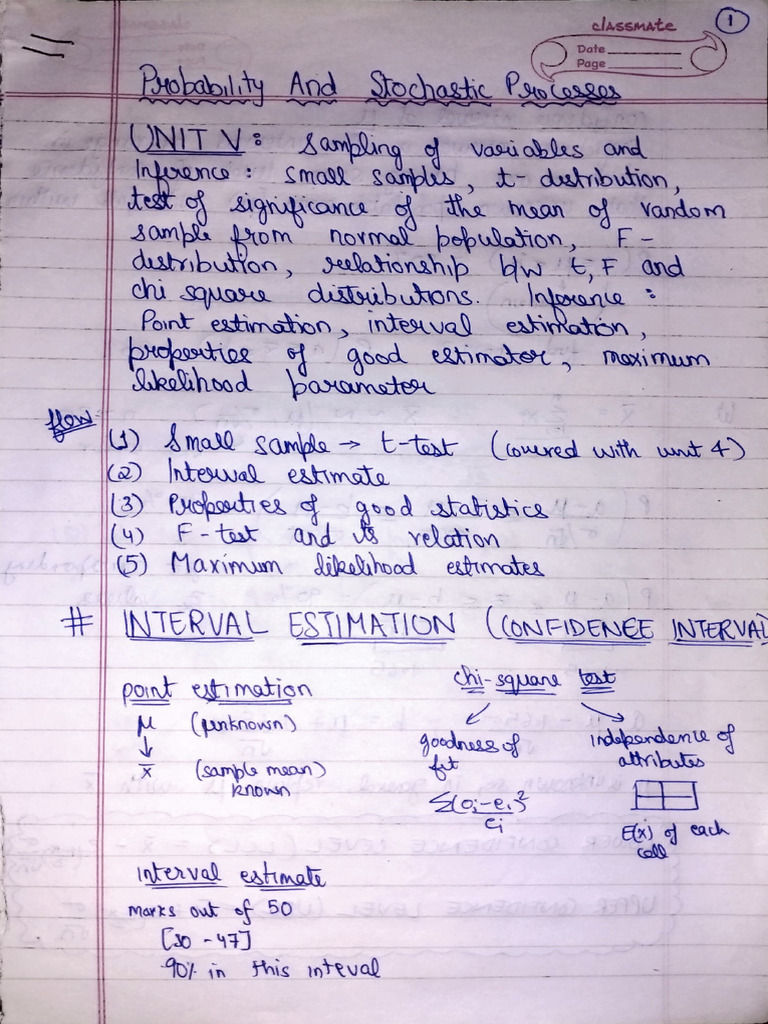 1
classmate
Date
Page
Probability And Stochastic Processes
UNIT V: Sampling of variables and
Inference: small samples, t-distribution,
test of significance of the mean of random
sample from normal population, F-
distribution, relationship b/w t, F and
chi square distributions. Inference:
Point estimation, interval estimation,
properties of good estimator, maximum
likelihood parameter
flow
(1) Small sample → t-test (covered with unit 4)
(2) Interval estimate
(3) Properties of good statistics
(4) F-test and its relation
(5) Maximum likelihood estimates
# INTERVAL ESTIMATION (CONFIDENCE INTERVAL)
point estimation
μ (unknown)
↓
x̄ (sample mean)
known
chi-square test
goodness of
fit
Σ(oi-ei)²
ei
independence of
attributes
E(x) of each
cell
interval estimate
marks out of 50
[30-47]
90% in this interval